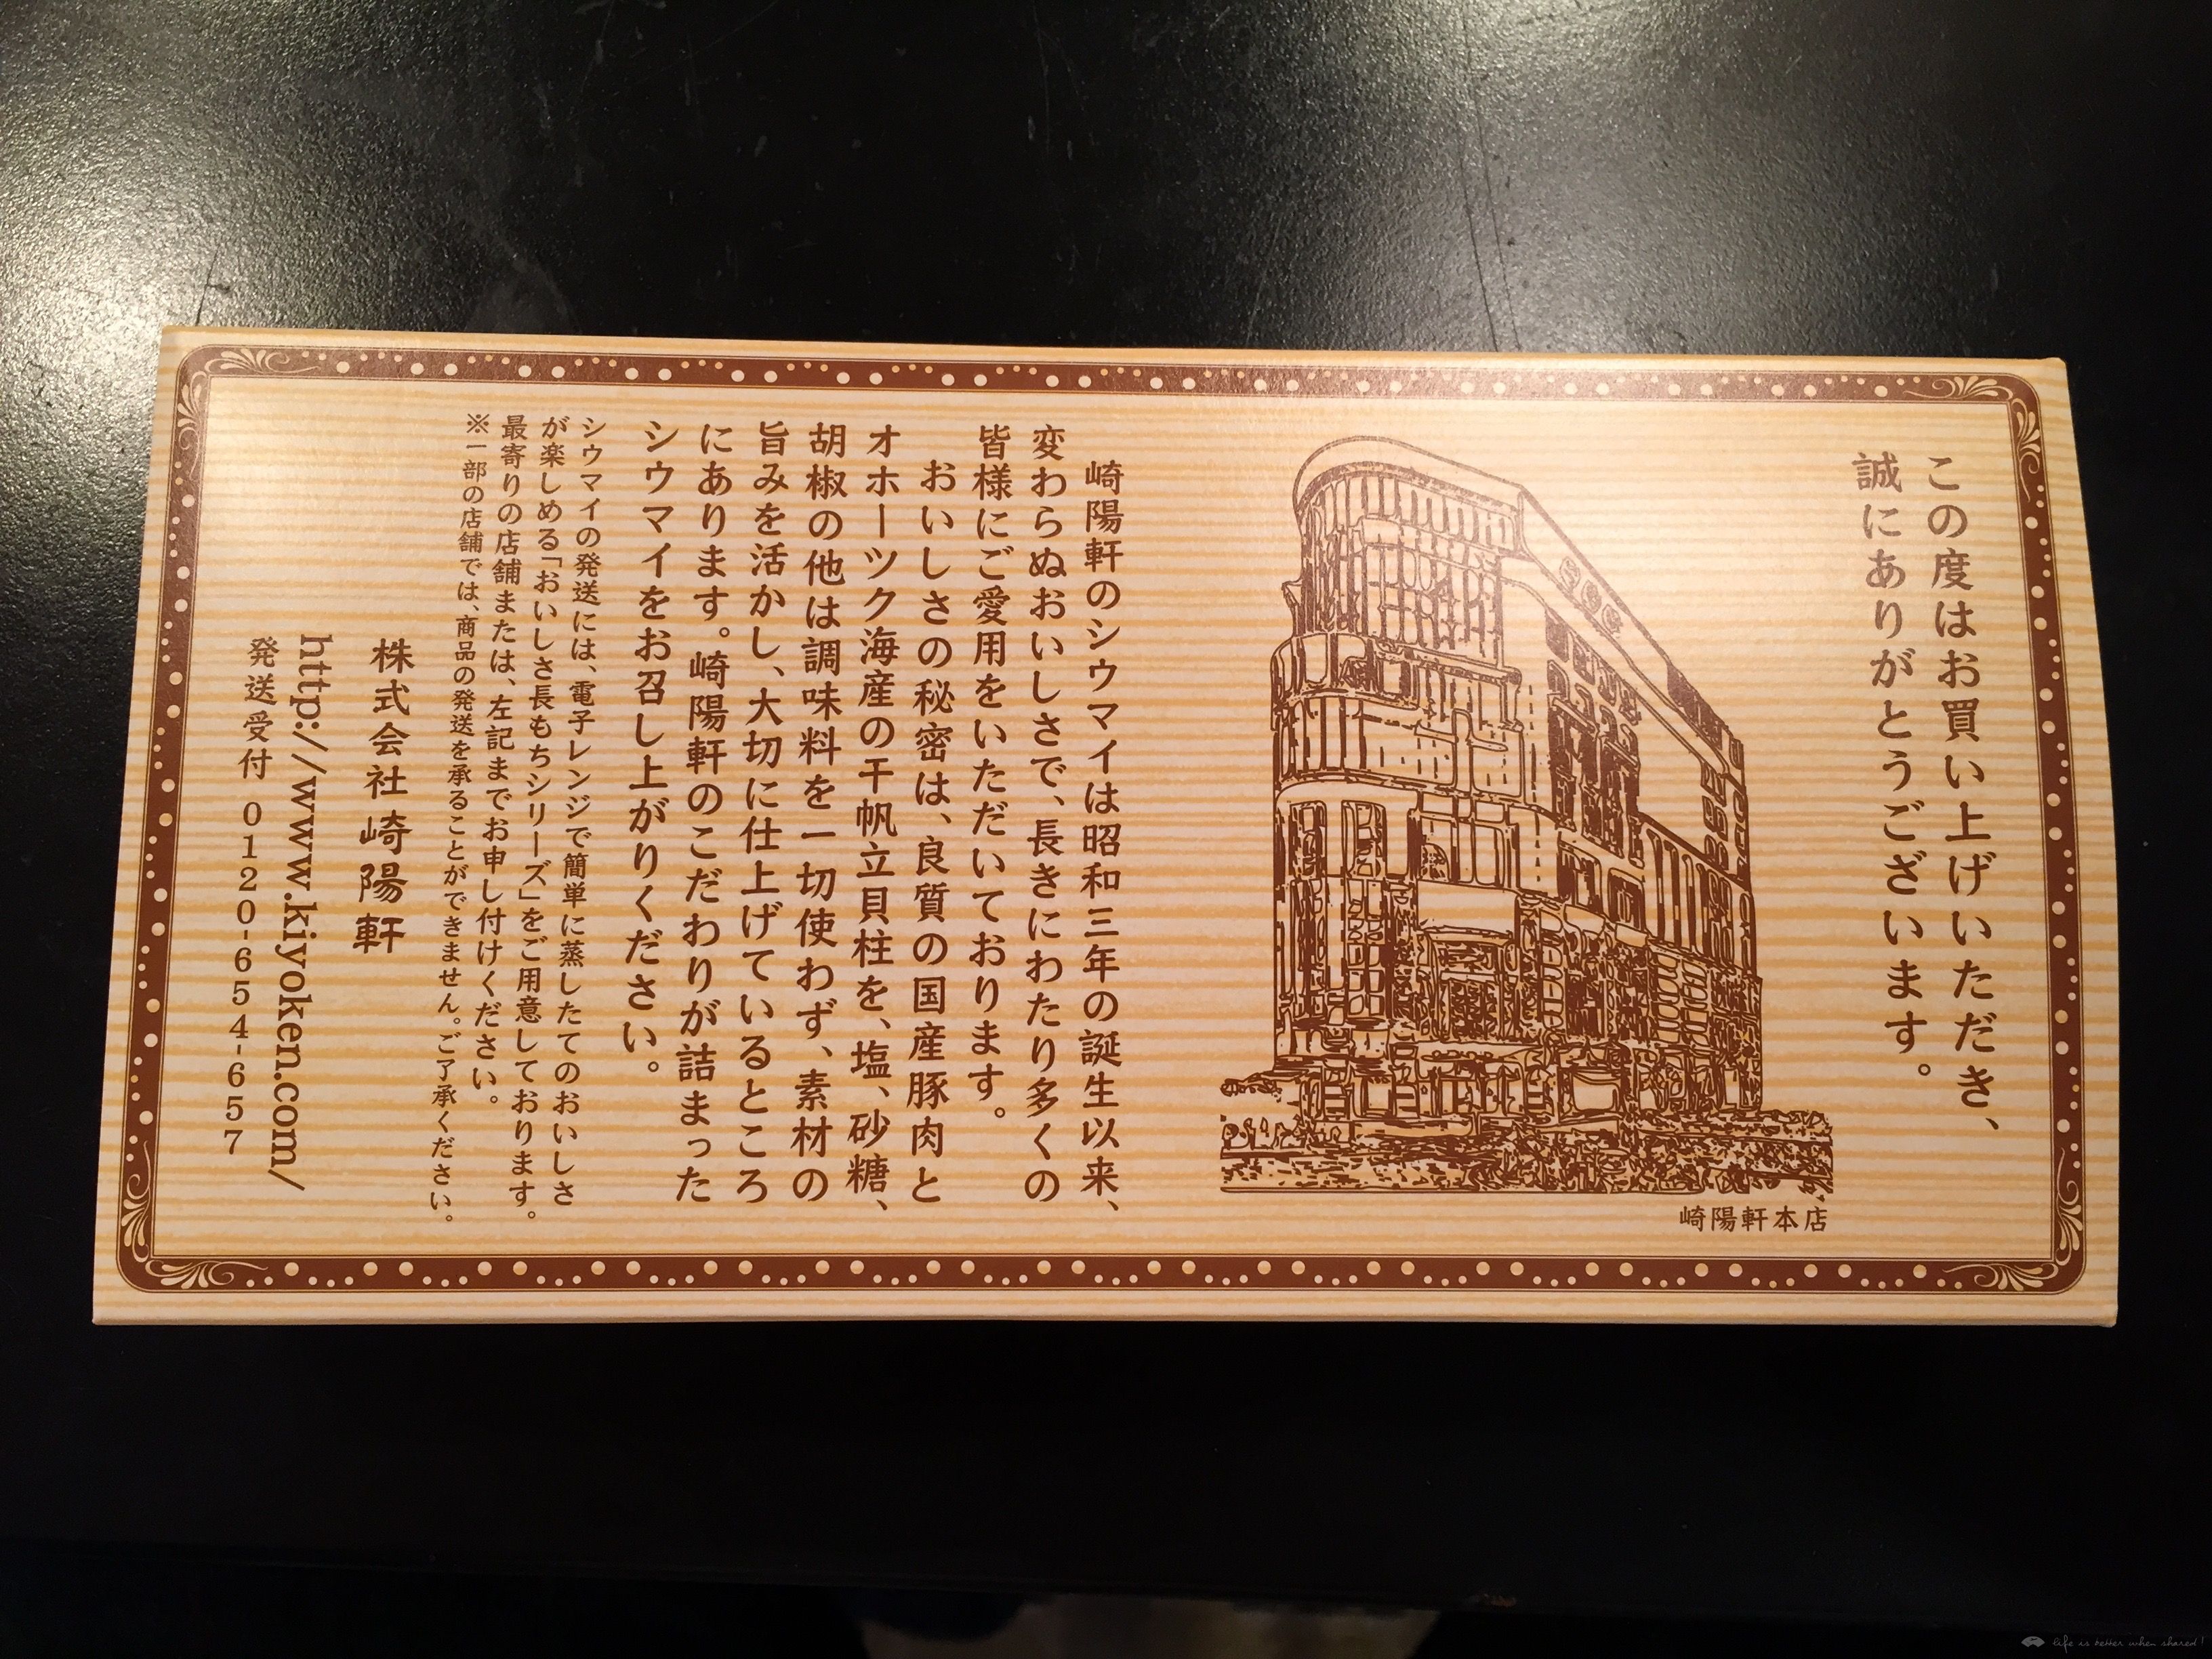 この度はお買い上げいただき、
誠にありがとうございます。
崎陽軒本店
崎陽軒のシウマイは昭和三年の誕生以来、
変わらぬおいしさで、長きにわたり多くの
皆様にご愛用をいただいております。
おいしさの秘密は、良質の国産豚肉と
オホーツク海産の干帆立貝柱を、塩、砂糖、
胡椒の他は調味料を一切使わず、素材の
旨みを活かし、大切に仕上げているところ
にあります。崎陽軒のこだわりが詰まった
シウマイをお召し上がりください。
シウマイの発送には、電子レンジで簡単に蒸したてのおいしさ
が楽しめる「おいしさ長もちシリーズ」をご用意しております。
最寄りの店舗または、左記までお申し付けください。
※一部の店舗では、商品の発送を承ることができません。ご了承ください。
株式会社 崎陽軒
http://www.kiyoken.com/
発送受付 0120-654-657
life is better when shared!